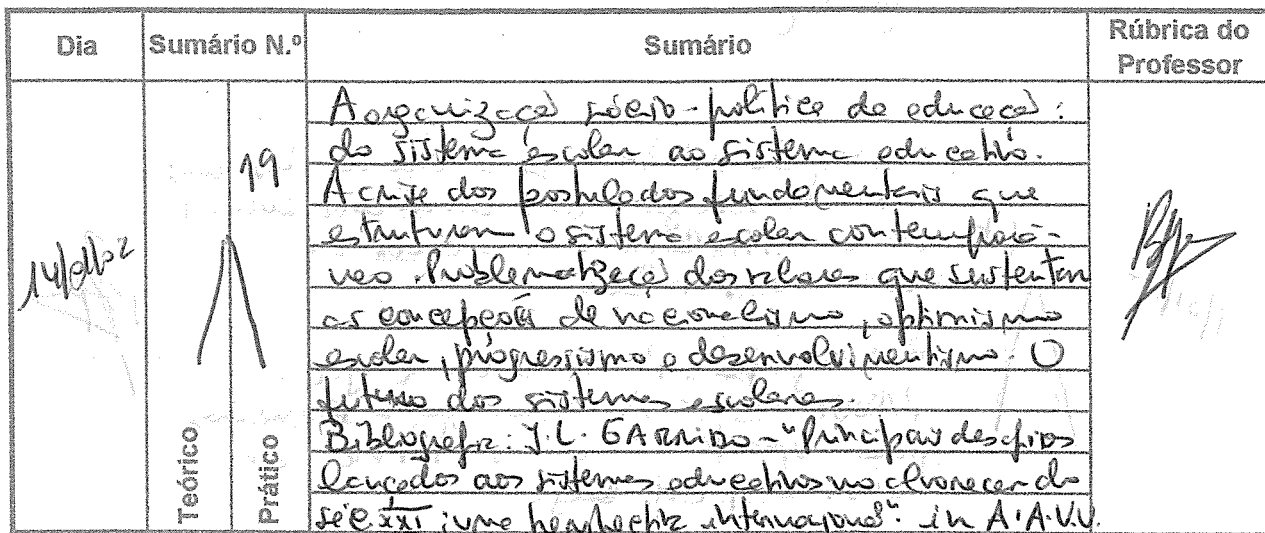 Dia Sumário N.º Sumário Rúbrica do Professor
14/01/02
19
Teórico
Prático
A organização sócio-política da educação:
do sistema escolar ao sistema educativo.
A crise dos postulados fundamentais que
estruturam o sistema escolar contemporâ-
neo. Problematização dos valores que sustentam
as concepções de nacionalismo, optimismo
escolar, progressismo e desenvolvimentismo. O
futuro dos sistemas escolares.
Bibliografia: J.L. GARRIDO - "Principais desafios
lançados aos sistemas educativos no alvorecer do
séc. XXI: uma perspectiva internacional". in A.A.V.V.